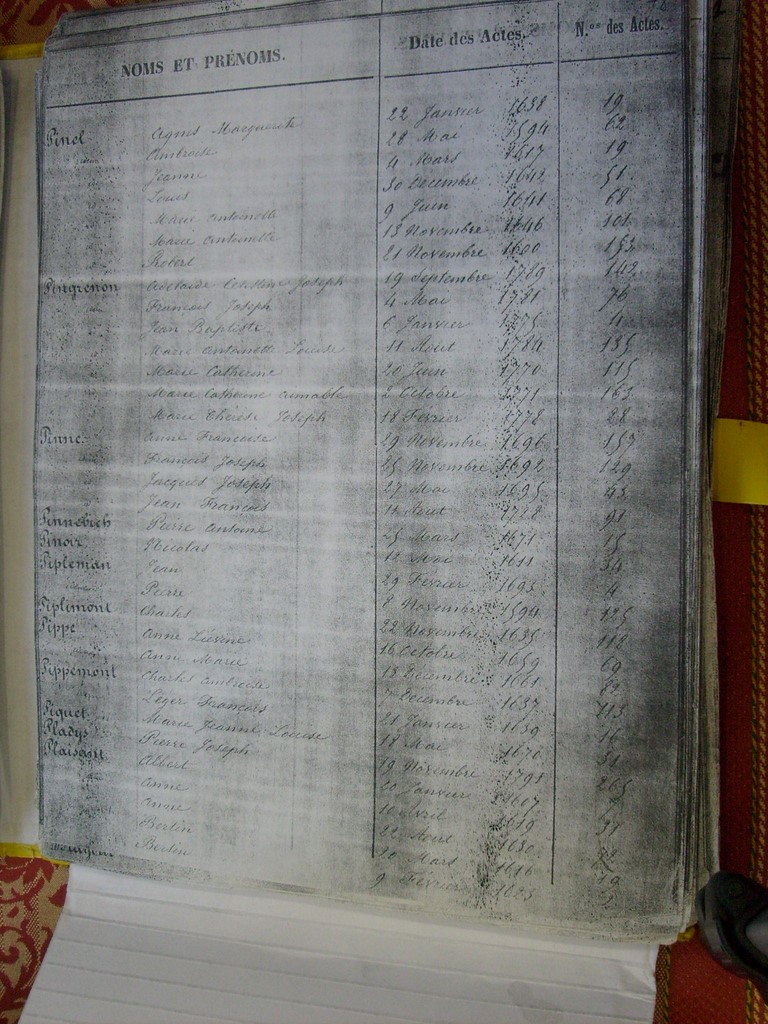 NOMS ET PRÉNOMS. Date des Actes. N.os des Actes.
Pinel Agnes Marguerite 22 Janvier 1638 19
Ambroise 28 Mai 1594 62
Jeanne 4 Mars 1617 19
Louis 30 Décembre 1642 51
Marie Antoinette 9 Juin 1641 68
Marie Antoinette 13 Novembre 1646 101
Robert 21 Novembre 1600 153
Pingrenon Adelaide Joseph 19 Septembre 1789 142
Francois Joseph 4 Mai 1781 76
Jean Baptiste 6 Janvier 1775 4
Marie Antoinette Louise 11 Aout 1784 135
Marie Catherine 20 Juin 1770 115
Marie Catherine Aimable 2 Octobre 1771 163
Marie Thérèse Joseph 18 Février 1778 28
Pinne Anne Francoise 29 Novembre 1696 157
Francois Joseph 25 Novembre 1692 129
Jacques Joseph 27 Mai 1695 43
Jean Francois 11 Aout 1728 93
Pinnebich Pierre Antoine 25 Mars 1671 15
Pinoir Nicolas 12 Mai 1611 34
Pipleman Jean 29 Février 1693 4
Pierre 8 Novembre 1594 125
Piplimont Charles 22 Novembre 1635 118
Pippe Anne Liévine 16 Octobre 1659 69
Anne Marie 13 Décembre 1661 82
Pippemont Charles Ambroise 7 Décembre 1637 113
Léger Francois 21 Janvier 1639 16
Piquet Marie Jeanne Louise 18 Mai 1670 51
Pladys Pierre Joseph 19 Novembre 1791 265
Plaisant Albert 20 Janvier 1607
Anne 10 Avril 1619 39
Anne 22 Aout 1630
Bertin 20 Mars 1616 19
Bertin 9 Février 1623 2